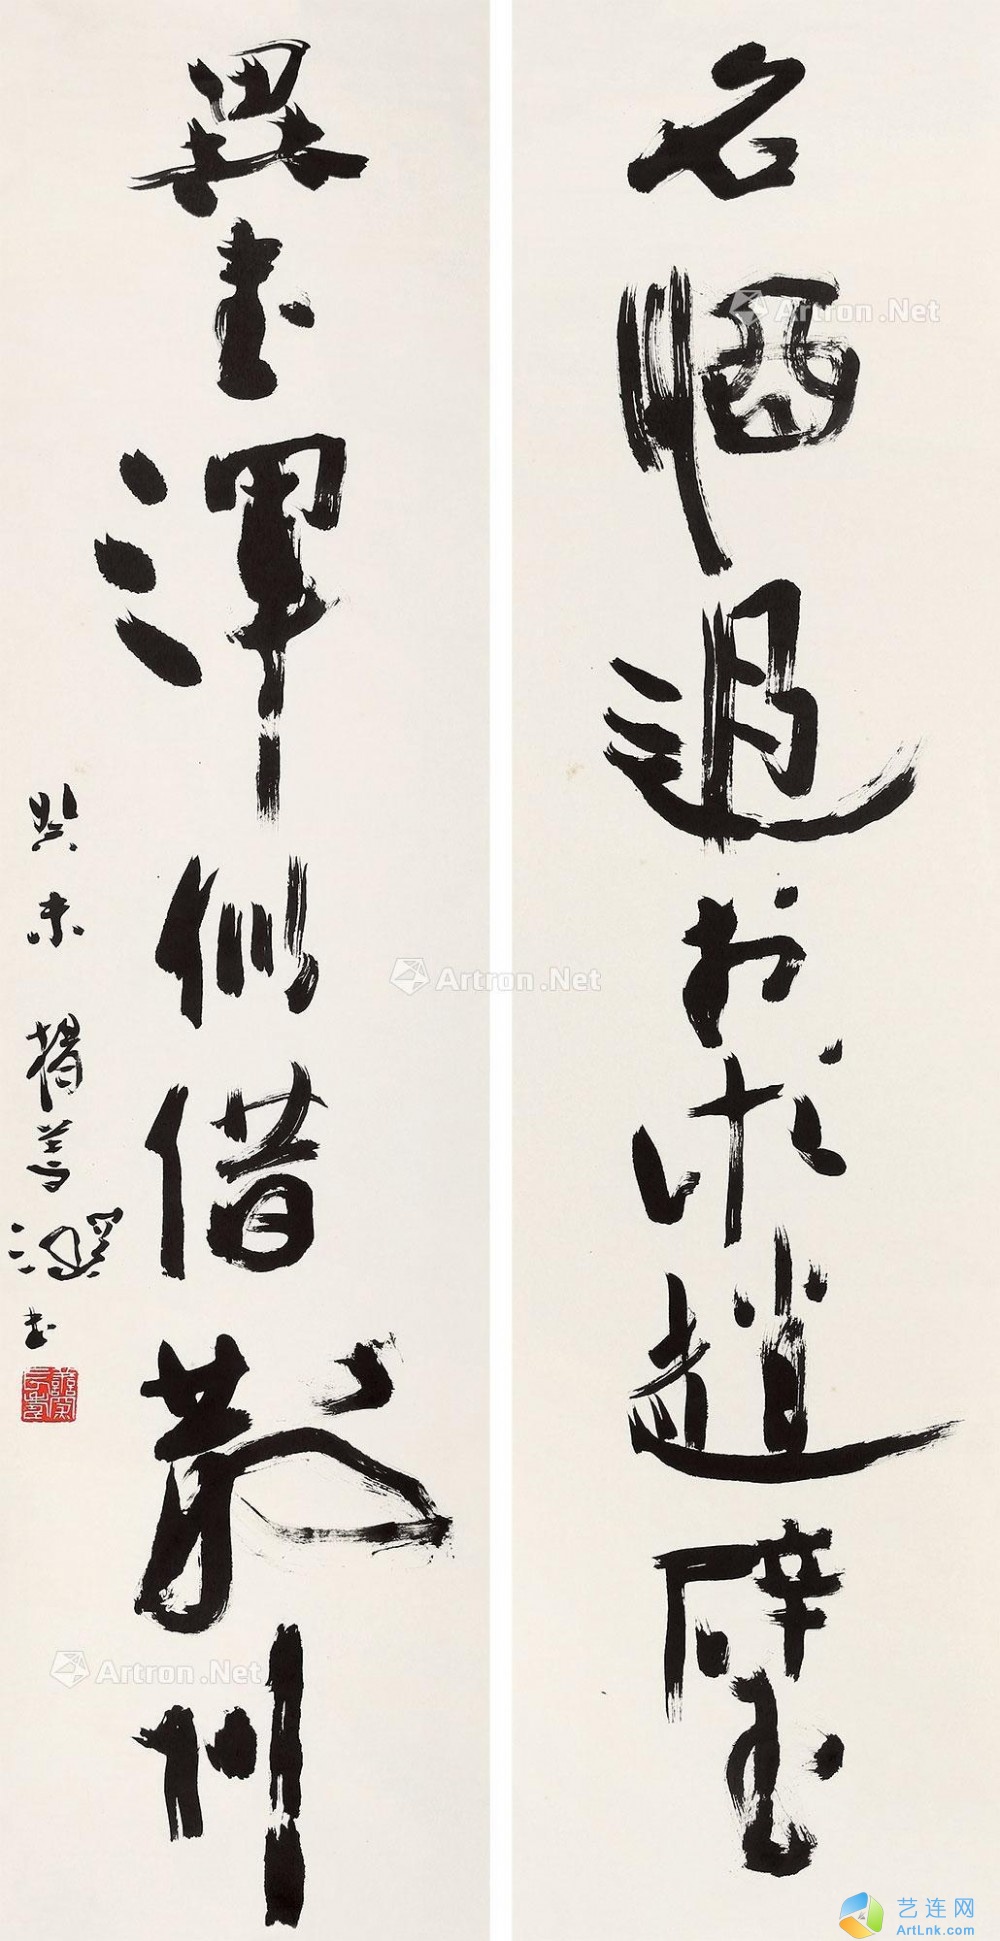 名酒過於求趙璧
異書渾似借荊州
癸未 楊善深書
Artron.Net
Artron.Net
Artron.Net
艺连网
ArtLnk.com